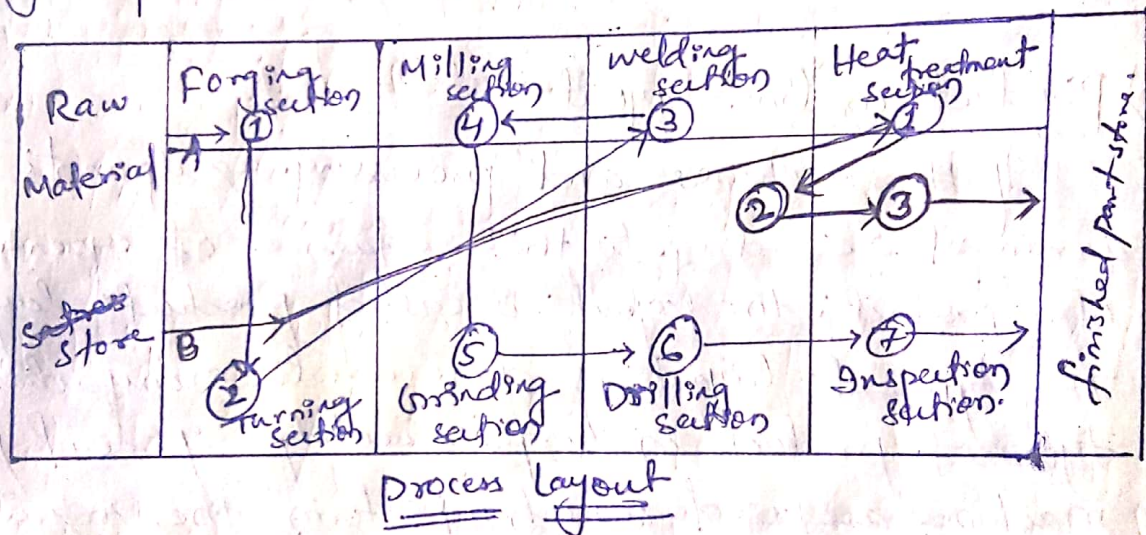 Raw
Material
store
A
B
Forging
section
1
2
Turning
section
Milling
section
4
5
Grinding
section
welding
section
3
6
Drilling
section
Heat
treatment
section
1
2
3
7
Inspection
section.
finished part store.
Process Layout